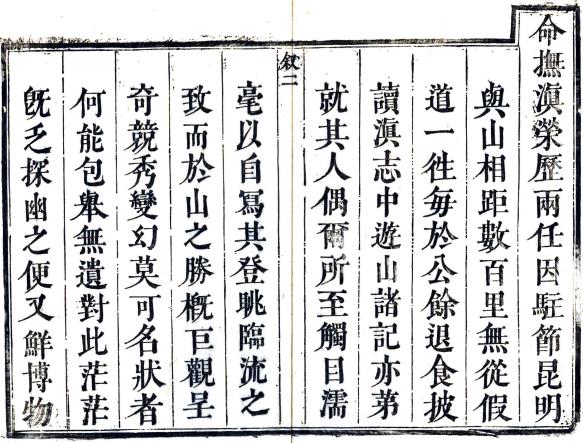 命撫滇荣歷兩任因駐節昆明
與山相距數百里無從假
道一徃每於公餘退食披
讀滇志中遊山諸記亦第
就其人偶爾所至觸目濡
叙二
毫以自寫其登眺臨流之
致而於山之勝槩巨觀呈
奇競秀變幻莫可名狀者
何能包舉無遺對此茫茫
旣乏探幽之便又鮮博物